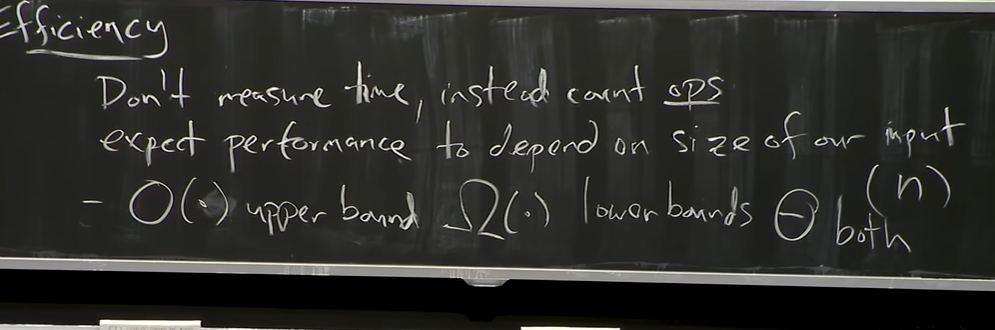 Efficiency
Don't measure time, instead count ops
expect performance to depend on size of our input
(n)
- O(·) upper bound Ω(·) lower bounds Θ both